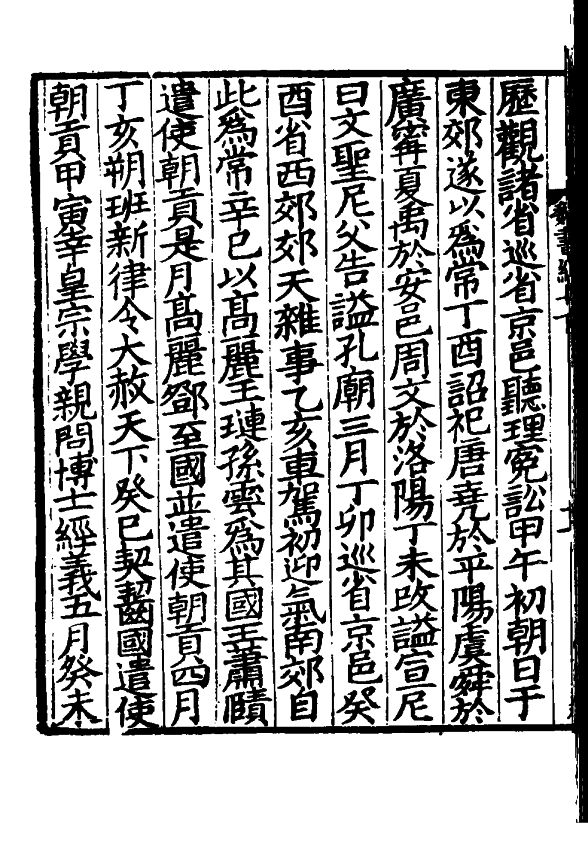 歷觀諸省巡省京邑聽理寃訟甲午初朝日于
東郊遂以爲常丁酉詔祀唐堯於平陽虞舜於
廣甯夏禹於安邑周文於洛陽丁未改謚宣尼
曰文聖尼父告謚孔廟三月丁卯巡省京邑癸
酉省西郊郊天雜事乙亥車駕初迎氣南郊自
此爲常辛巳以髙麗王璉孫雲爲其國王蕭賾
遣使朝貢是月髙麗鄧至國並遣使朝貢四月
丁亥朔班新律令大赦天下癸巳契齧國遣使
朝貢甲寅幸皇宗學親問博士經義五月癸未